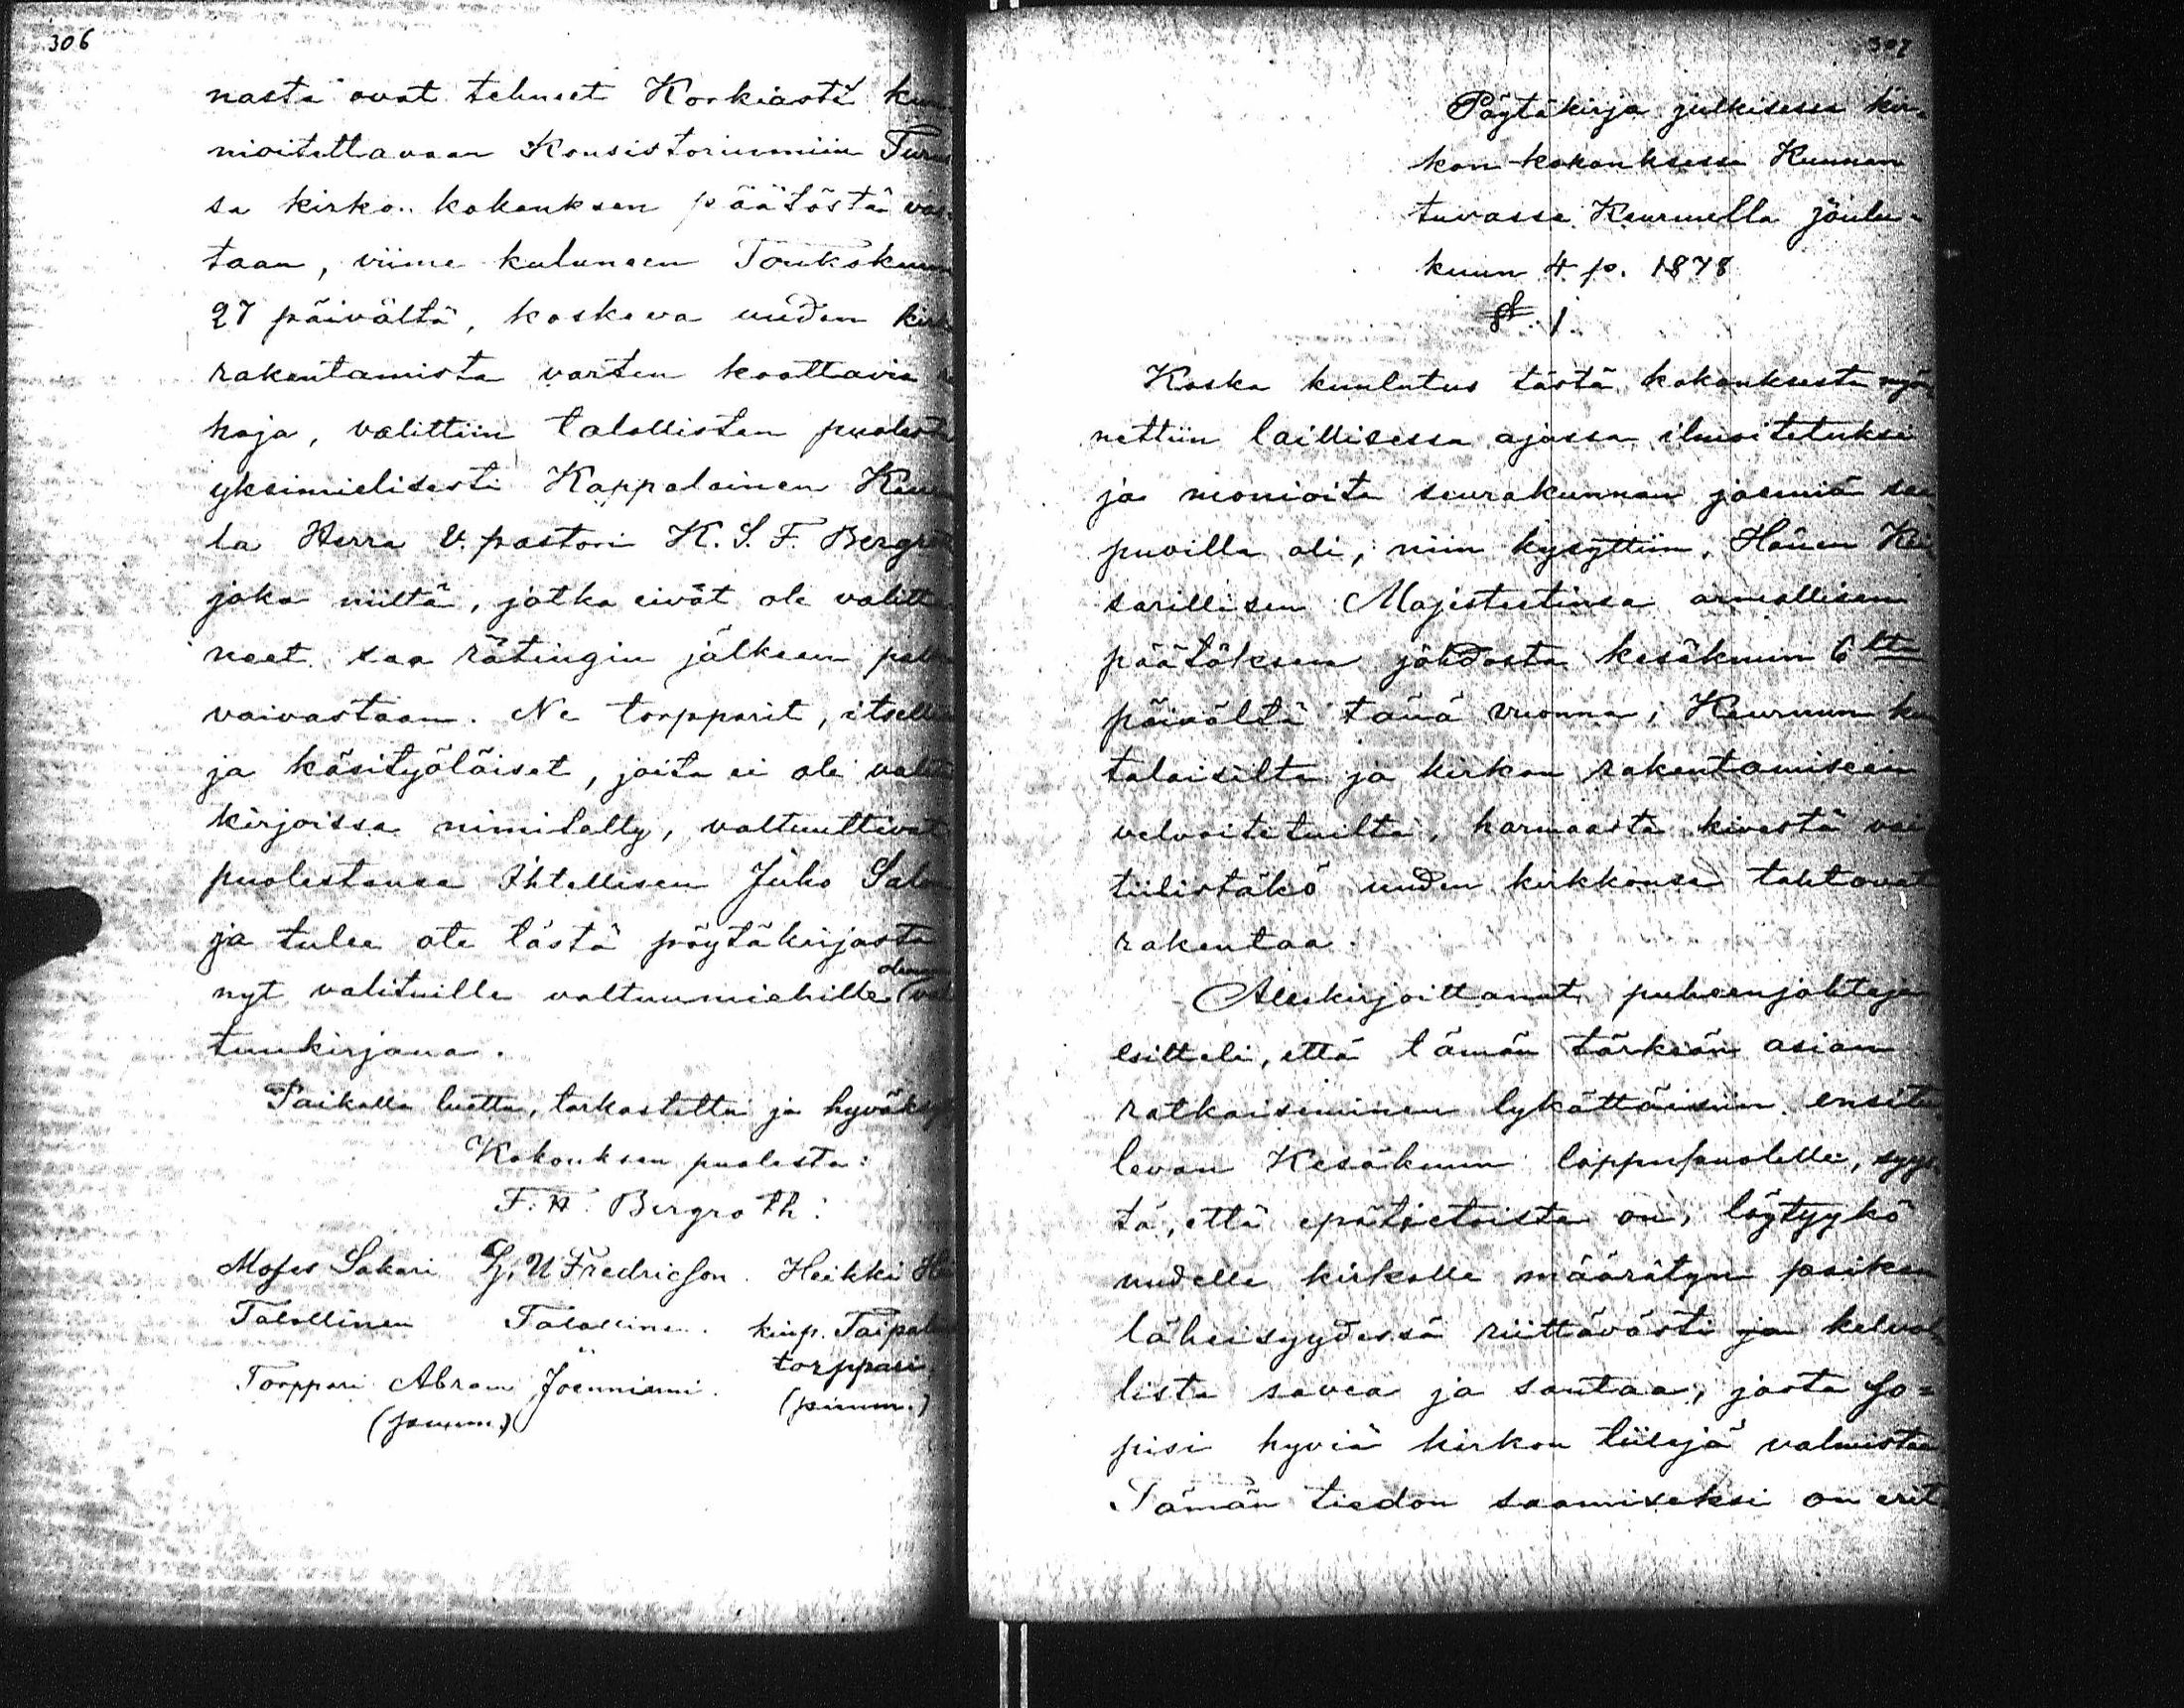 306
nasta ovat tehneet Korkiasti kun
nioitettavaan Konsistoriumiin Turus
sa kirko.. kokouksen päätöstä vas-
taan, viime kuluneen Toukokuun
27 päivältä, koskeva uuden kirk
rakentamista varten koottavia
hoja, valittiin talollisten puolesta
yksimielisesti Kappalainen Keuru
la Herra V. pastori K. S. F. Bergro
joka niiltä, jotka eivät ole valitta
neet saa rätingin jälkeen palk
vaivastaan. Ne torpparit, itsellis
ja käsityöläiset, joita ei ole valit
kirjoissa nimitetty, valtuuttivat
puolestansa Ihtellisen Juho Salo
ja tulee ote tästä pöytäkirjasta
nyt valituille valtuumiehille olemaan val
tuukirjana.
Paikalla luettu, tarkastettu ja hyväksy
Kokouksen puolesta:
F. H. Bergroth:
Moses Sakari G. U Fredricson. Heikki
Talollinen Talollinen. kinp. Taipale
torppari
Torppari Abram Joenniemi. (pinum.)
(pnum.)
307
Pöytäkirja julkisessa kir-
kon-kokouksessa Kunnan
tuvassa Keuruulla joulu-
kuun 4 p. 1878
§. 1.
Koska kuulutus tästä kokouksesta myön
nettiin laillisessa ajassa ilmoitetuksi
ja monioita seurakunnan jäseniä saa
puvilla oli, niin kysyttiin, Hänen Kei
sarillisen Majesteetinsa armollisen
päätöksen johdosta kesäkuun 6 lta
päivältä tänä vuonna, Keuruun kun
talaisilta ja kirkon rakentamiseen
velvoitetuilta, harmaasta kivestä vai
tiilistäkö uuden kirkkonsa tahtovat
rakentaa.
Allekirjoittanut puheenjohtaja
esitteli, että tämän tärkeän asian
ratkaiseminen lykättäisiin ensitu
levan Kesäkuun loppupuolelle, syys
tä, että epätietoista on, löytyykö
uudelle kirkolle määrätyn paikan
läheisyydessä riittävästi ja kelvol
lista savea ja santaa, josta so=
pisi hyviä kirkon tiilejä valmistaa
Tämän tiedon saamiseksi on erit